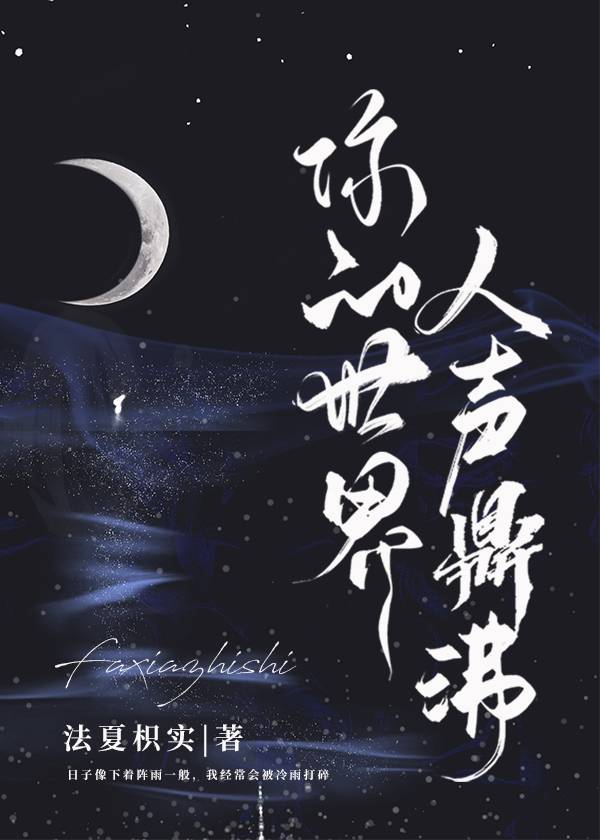 你的世界
人声鼎沸
faxiazhishi
法夏枳实|著
日子像下着阵雨一般，我经常会被冷雨打碎